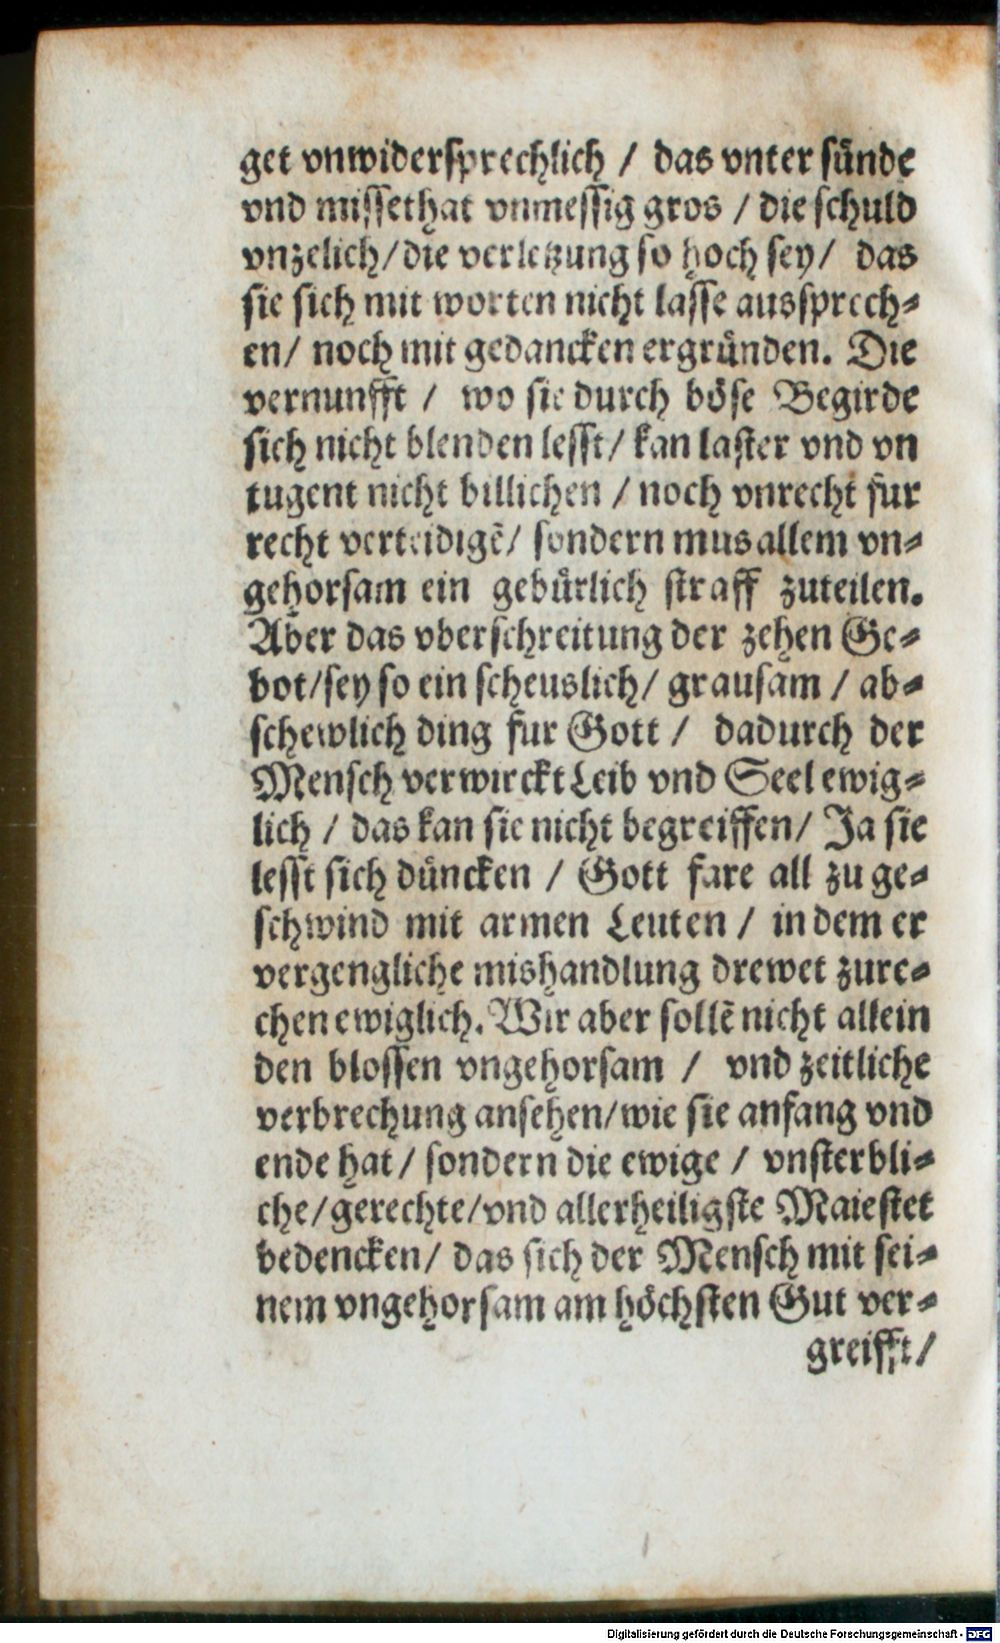 get vnwidersprechlich / das vnter sünde
vnd missethat vnmessig gros / die schuld
vnzelich/die verletzung so hoch sey/ das
sie sich mit worten nicht lasse aussprech⸗
en/ noch mit gedancken ergründen. Die
vernunfft / wo sie durch böse Begirde
sich nicht blenden lesst/ kan laster vnd vn
tugent nicht billichen / noch vnrecht fur
recht verteidigē/ sondern mus allem vn⸗
gehorsam ein gebürlich straff zuteilen.
Aber das vberschreitung der zehen Ge⸗
bot/sey so ein scheuslich/ grausam / ab⸗
schewlich ding fur Gott / dadurch der
Mensch verwirckt Leib vnd Seel ewig⸗
lich / das kan sie nicht begreiffen/ Ja sie
lesst sich düncken / Gott fare all zu ge⸗
schwind mit armen Leuten / in dem er
vergengliche mishandlung drewet zure⸗
chen ewiglich. Wir aber sollē nicht allein
den blossen vngehorsam / vnd zeitliche
verbrechung ansehen/wie sie anfang vnd
ende hat/ sondern die ewige / vnsterbli⸗
che/gerechte/vnd allerheiligste Maiestet
bedencken/ das sich der Mensch mit sei⸗
nem vngehorsam am höchsten Gut ver⸗
greifft/
Digitalisierung gefördert durch die Deutsche Forschungsgemeinschaft - DFG